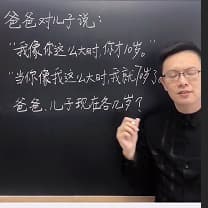 爸爸对儿子说：
"我像你这么大时，你才10岁。"
"当你像我这么大时，我就岁了
爸爸、儿子现在各几岁？